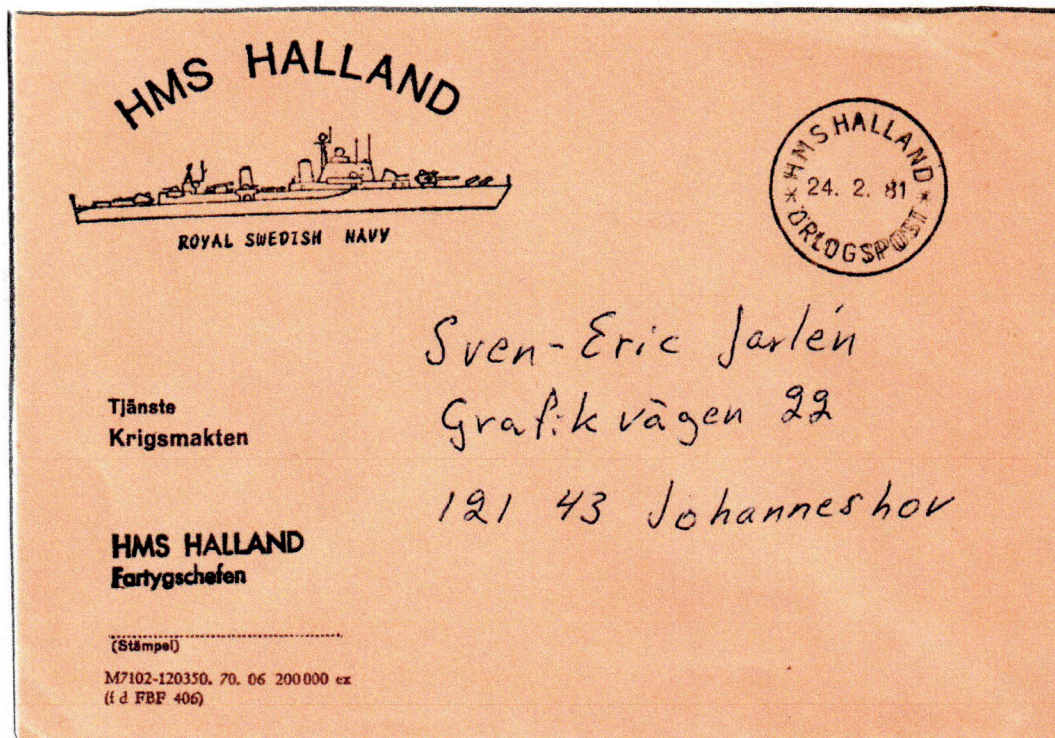 HMS HALLAND
ROYAL SWEDISH NAVY
HMS HALLAND
24. 2. 81
ÖRLOGSPOST
Sven-Eric Jarlén
Grafikvägen 22
121 43 Johanneshov
Tjänste
Krigsmakten
HMS HALLAND
Fartygschefen
(Stämpel)
M7102-120350. 70. 06 200000 ex
(f d FBF 406)